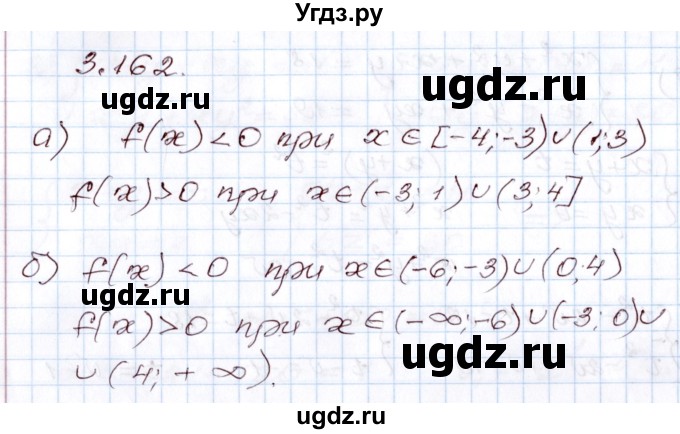 Угдз.ру
3.162.
ugdz.ru
ugdz.ru
а) f(x)<0 при x∈[-4;-3)∪(1;3)
f(x)>0 при x∈(-3;1)∪(3;4]
ugdz.ru
б) f(x)<0 при x∈(-6;-3)∪(0;4)
ugdz.ru
f(x)>0 при x∈(-∞;-6)∪(-3;0)∪
ugdz.ru
∪(4;+∞).
ugdz.ru